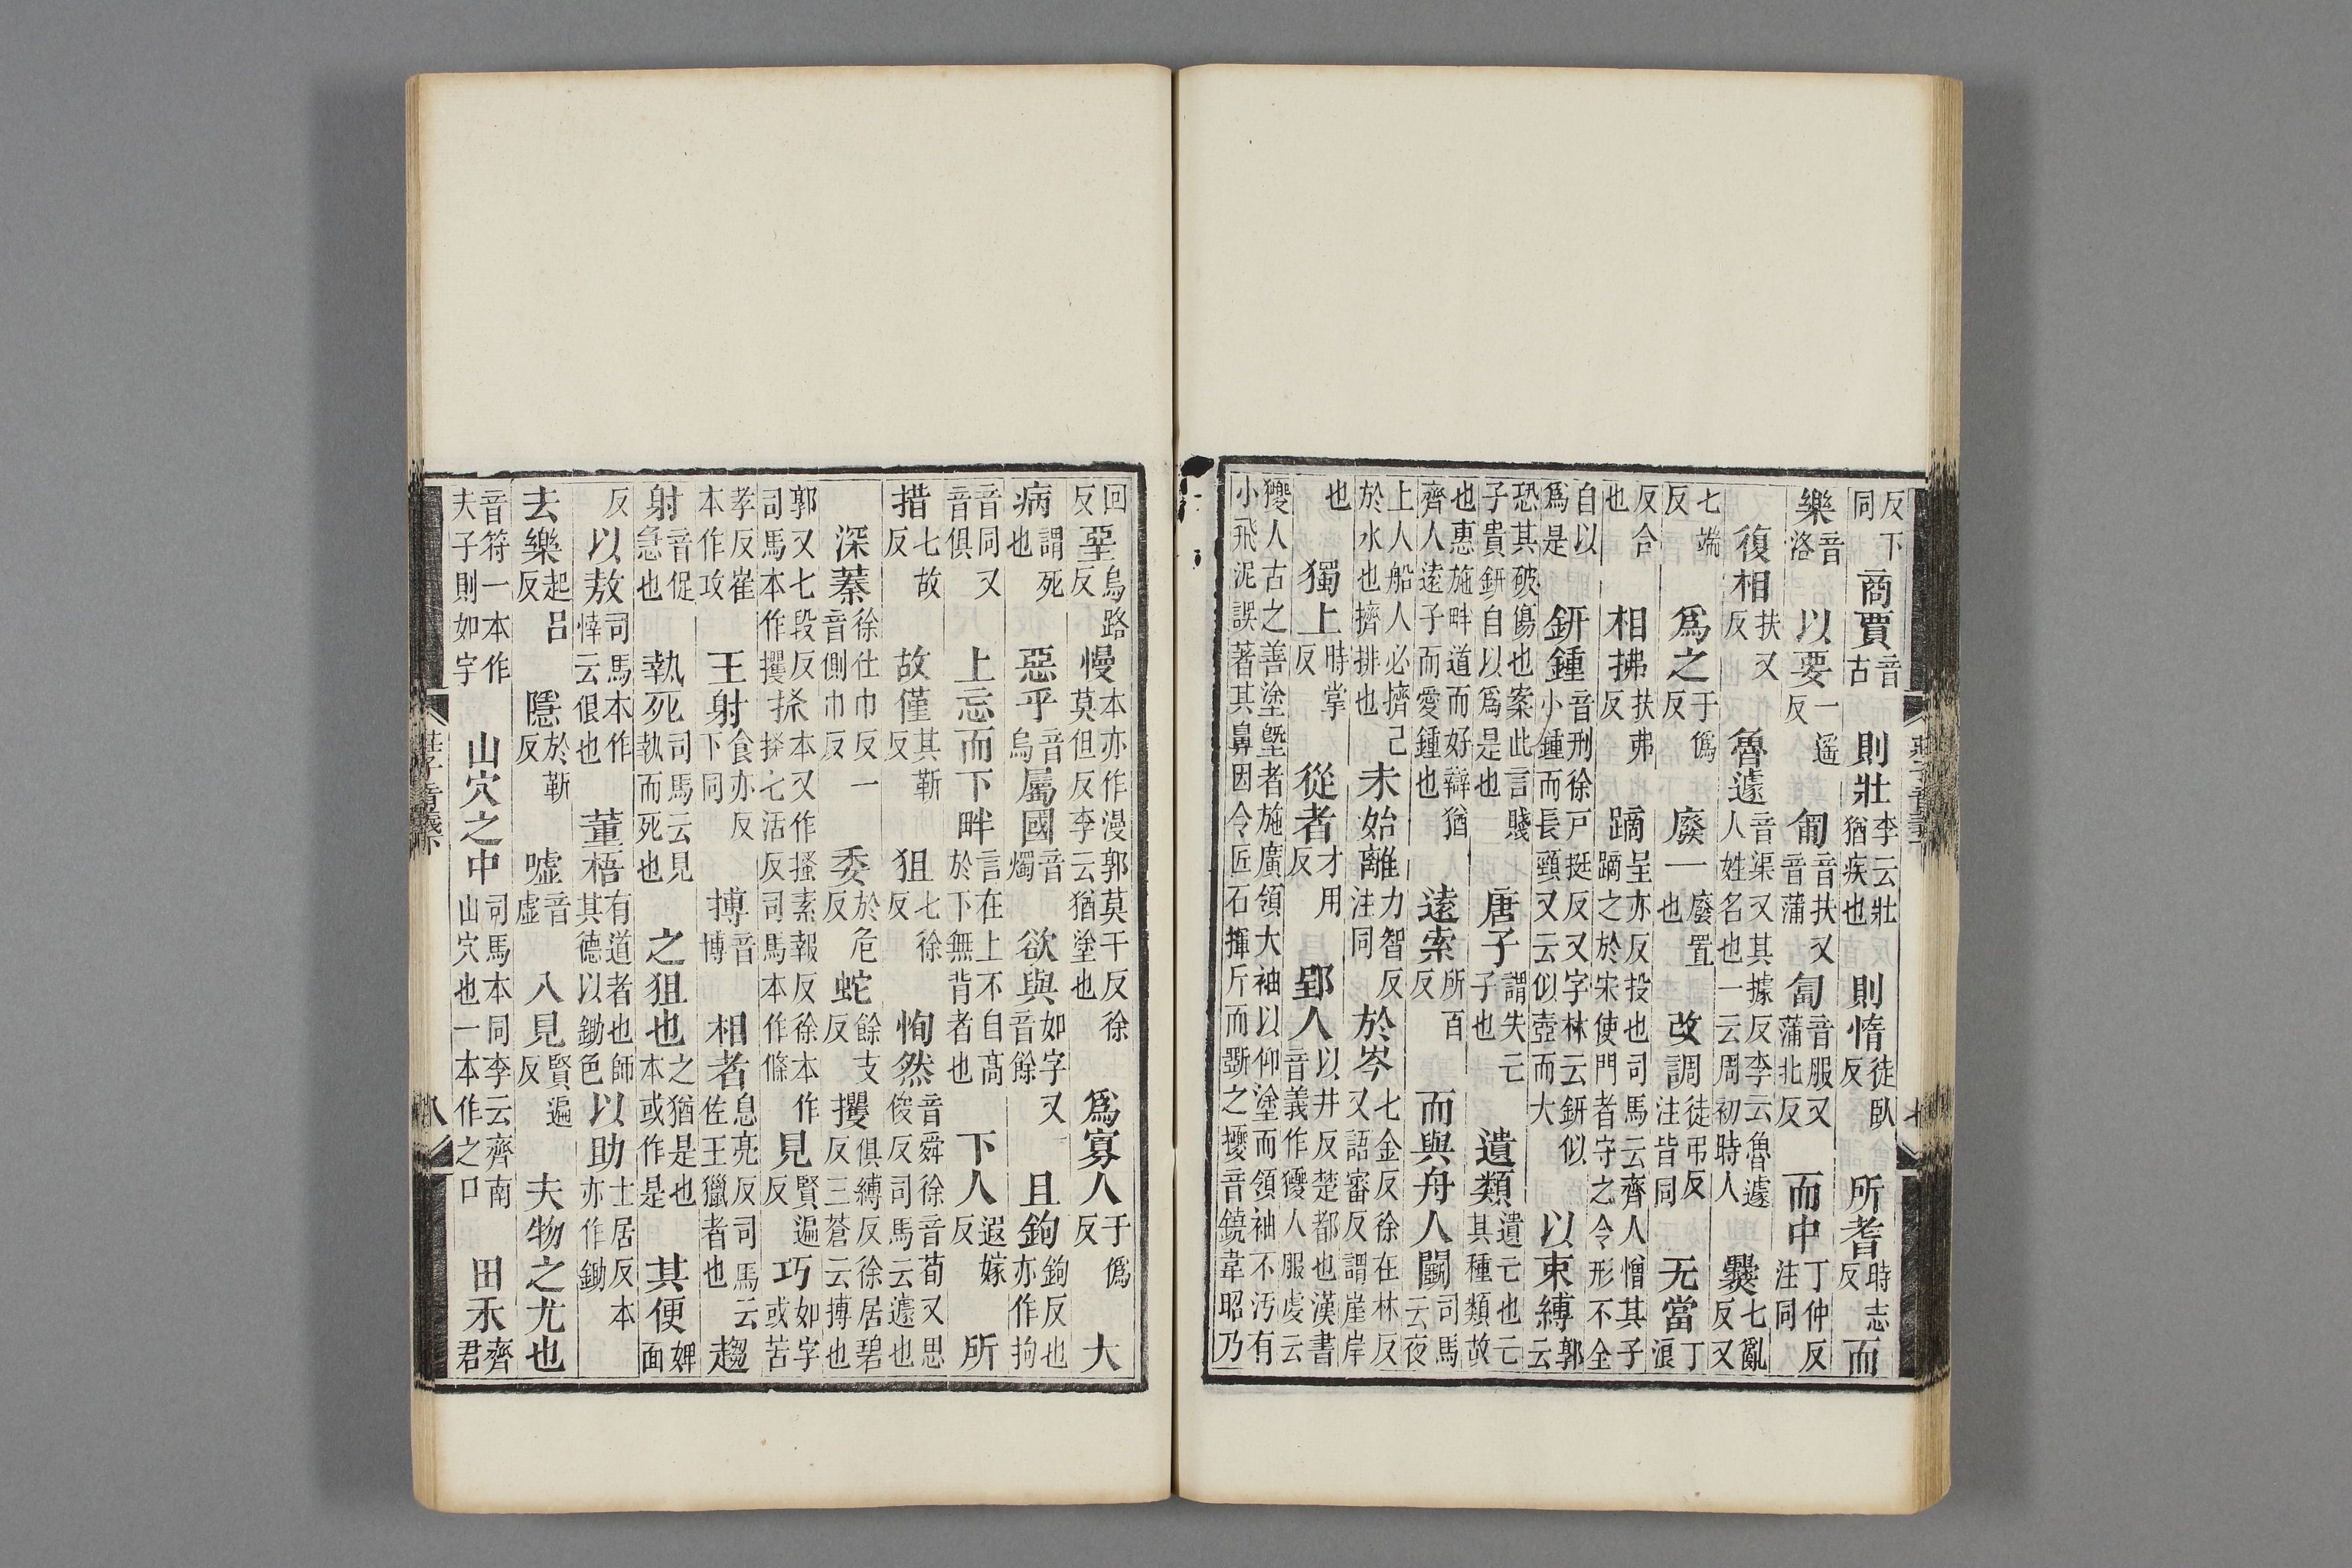 反下同商賈音古則壯李云壯猶疾也則惰徒臥反所耆時志反而
樂音洛以要一遥反匍音扶又音蒲匐音服又蒲北反而中丁仲反注同
復相扶又反魯遽音渠又其據反李云魯遽人姓名也一云周初時人爨七亂反又
七端反爲之于僞反廢一廢置也改調徒弔反注皆同无當丁浪
反合也相拂扶弗反蹢呈亦反投也司馬云齊人憎其子蹢之於宋使門者守之令形不全
自以爲是鈃鍾音刑徐戸挺反又字林云鈃似小鍾而長頸又云似壺而大以束縛郭云
恐其破傷也案此言賤子貴鈃自以爲是也唐子謂失亡子也遺類遺亡也亡其種類故
也惠施畔道而好辯猶齊人遠子而愛鍾也遠索所百反而與舟人鬭司馬云夜
上人船人必擠己於水也擠排也未始離力智反注同於岑七金反徐在林反又語審反謂崖岸
也獨上時掌反從者才用反郢人以井反楚都也漢書音義作獿人服虔云
獿人古之善塗塈者施廣領大袖以仰塗而領袖不汚有小飛泥誤著其鼻因令匠石揮斤而斲之獿音鐃韋昭乃
回反堊烏路反慢本亦作漫郭莫干反徐莫但反李云猶塗也爲寡人于僞反大
病謂死也惡乎音烏屬國音燭欲與如字又音餘且鉤鉤反也亦作拘
音同又音俱上忘而下畔言在上不自高於下無背者也下人遐嫁反所
措七故反故僅其靳反狙七徐反恂然音舜徐音荀又思俊反司馬云遽也
深蓁徐仕巾反一音側巾反委於危反蛇餘支反攫俱縛反徐居碧反三蒼云搏也
郭又七段反司馬本作攫𢫫本又作搔素報反徐本作搽七活反司馬本作條見賢遍反巧如字或苦
孝反崔本作攻王射食亦反下同搏音博相者息亮反司馬云佐王獵者也趨
射音促急也執死司馬云見執而死也之狙也之猶是也本或作是其便婢面
反以敖司馬本作悻云很也董梧有道者也師其德以鋤色以助士居反本亦作鋤
去樂起呂反隱於靳反噓音虛入見賢遍反夫物之尤也
音符一本作夫子則如字山穴之中司馬本同李云齊南山穴也一本作之口田禾齊君